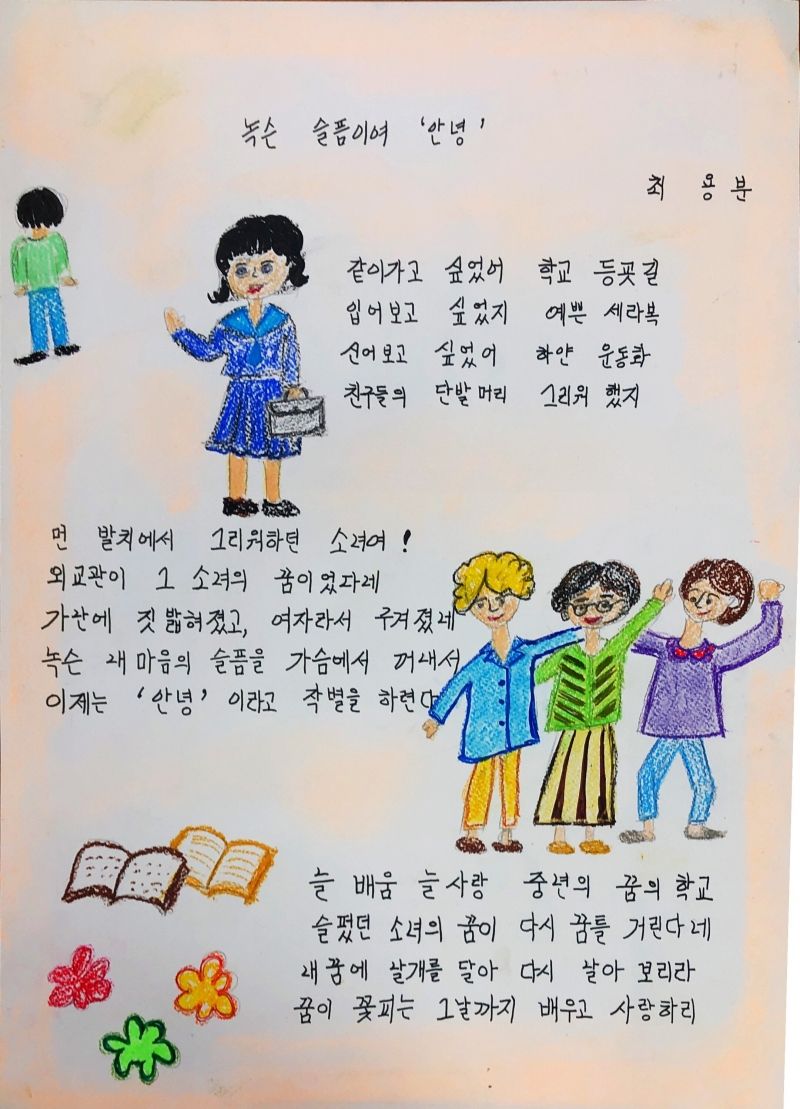 녹슨 슬픔이여 '안녕'
최용분
같이가고 싶었어 학교 등굣길
입어보고 싶었지 예쁜 세라복
신어보고 싶었어 하얀 운동화
친구들의 단발머리 그리워 했지
먼 발치에서 그리워하던 소녀여!
외교관이 그 소녀의 꿈이었다네
가난에 짓밟혀졌고, 여자라서 구겨졌네
녹슨 내 마음의 슬픔을 가슴에서 꺼내서
이제는 '안녕'이라고 작별을 하련다
늘 배움 늘 사랑 중년의 꿈의 학교
슬펐던 소녀의 꿈이 다시 꿈틀 거린다네
내 꿈에 날개를 달아 다시 날아 보리라
꿈이 꽃피는 그날까지 배우고 사랑하리